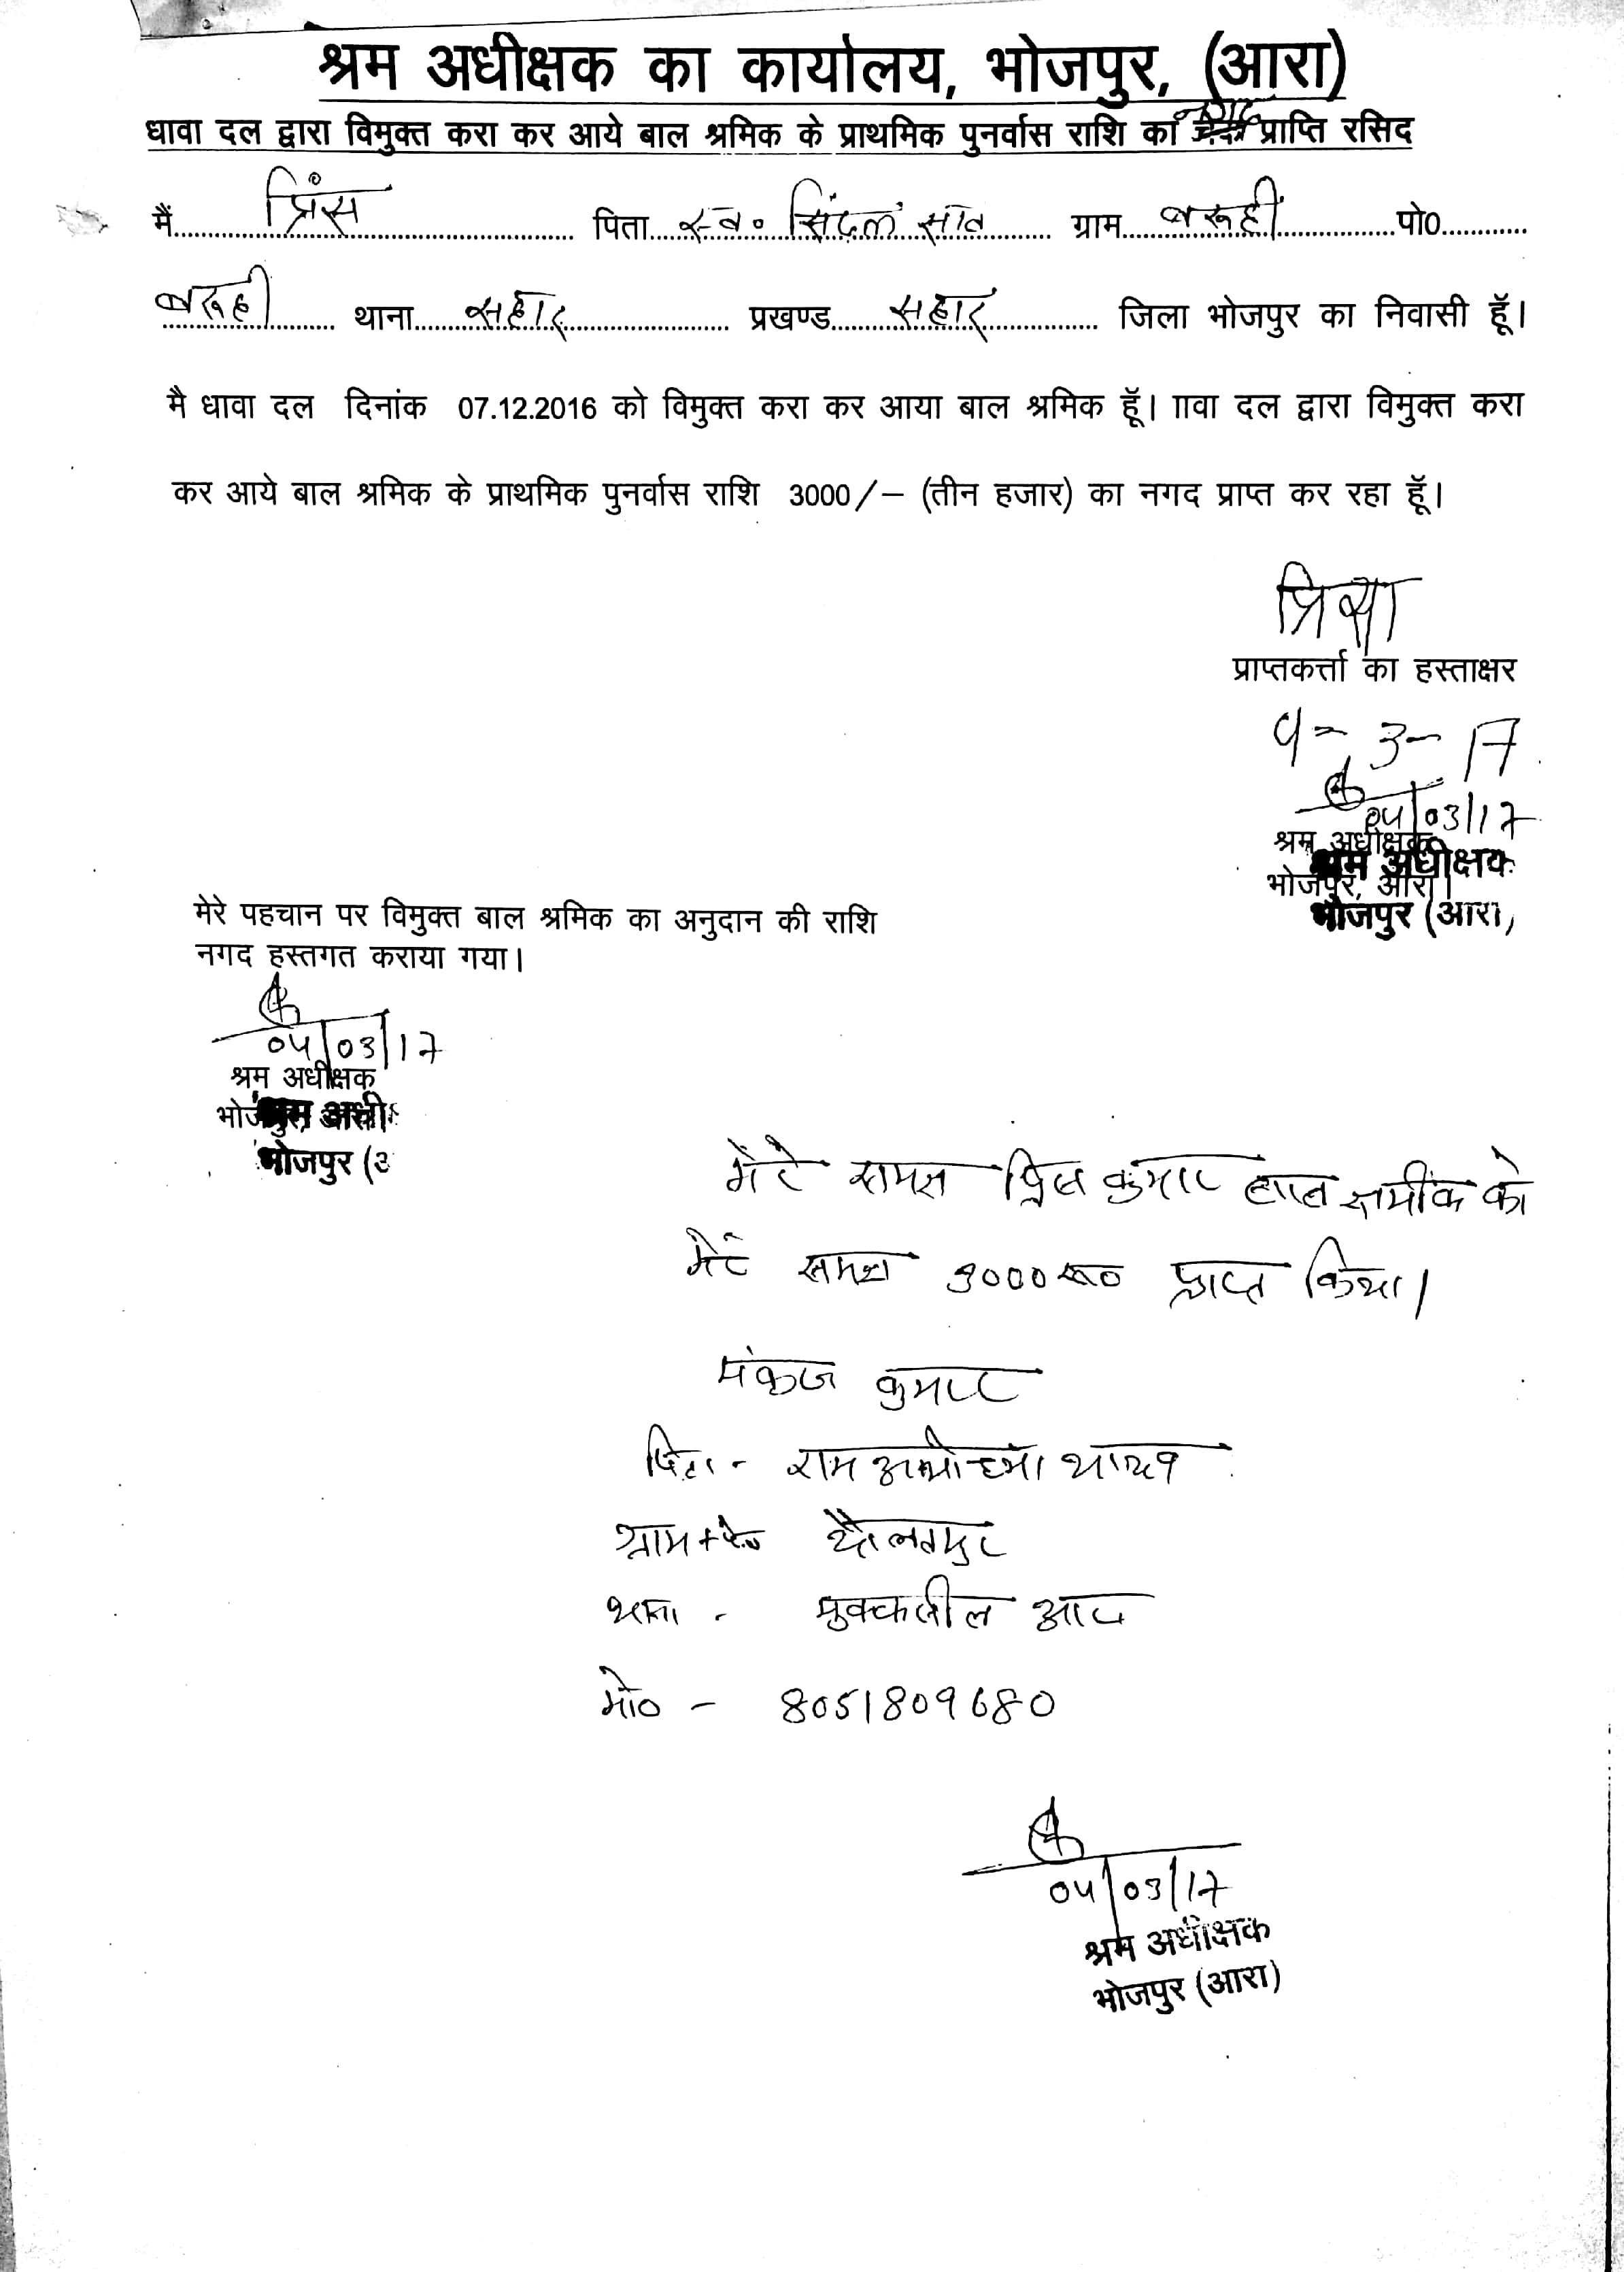 श्रम अधीक्षक का कार्यालय, भोजपुर, (आरा)
नगद
धावा दल द्वारा विमुक्त करा कर आये बाल श्रमिक के प्राथमिक पुनर्वास राशि का चेक प्राप्ति रसिद
मैं प्रिंस पिता स्व० सिंदल साव ग्राम बरूही पो0
बरूही थाना सहार प्रखण्ड सहार जिला भोजपुर का निवासी हूॅ।
मै धावा दल दिनांक 07.12.2016 को विमुक्त करा कर आया बाल श्रमिक हूॅ। ाावा दल द्वारा विमुक्त करा
कर आये बाल श्रमिक के प्राथमिक पुनर्वास राशि 3000/– (तीन हजार) का नगद प्राप्त कर रहा हूॅ।
प्राप्तकर्त्ता का हस्ताक्षर
4-3-17
04/03/17
श्रम अधीक्षक
श्रम अधीक्षक
भोजपुर, आरा।
भोजपुर (आरा)
मेरे पहचान पर विमुक्त बाल श्रमिक का अनुदान की राशि
नगद हस्तगत कराया गया।
04/03/17
श्रम अधीक्षक
श्रम अधी
भोजपुर, आरा
भोजपुर (अ
मेरे समक्ष प्रिंस कुमार बाल श्रमीक को
मेरे समक्ष 3000रू० प्राप्त किया।
पंकज कुमार
पिता - राम अयोध्या यादव
ग्राम+पो० दौलतपुर
थाना - मुफ्फसील आरा
मो० - 8051809680
04/03/17
श्रम अधीक्षक
भोजपुर (आरा)